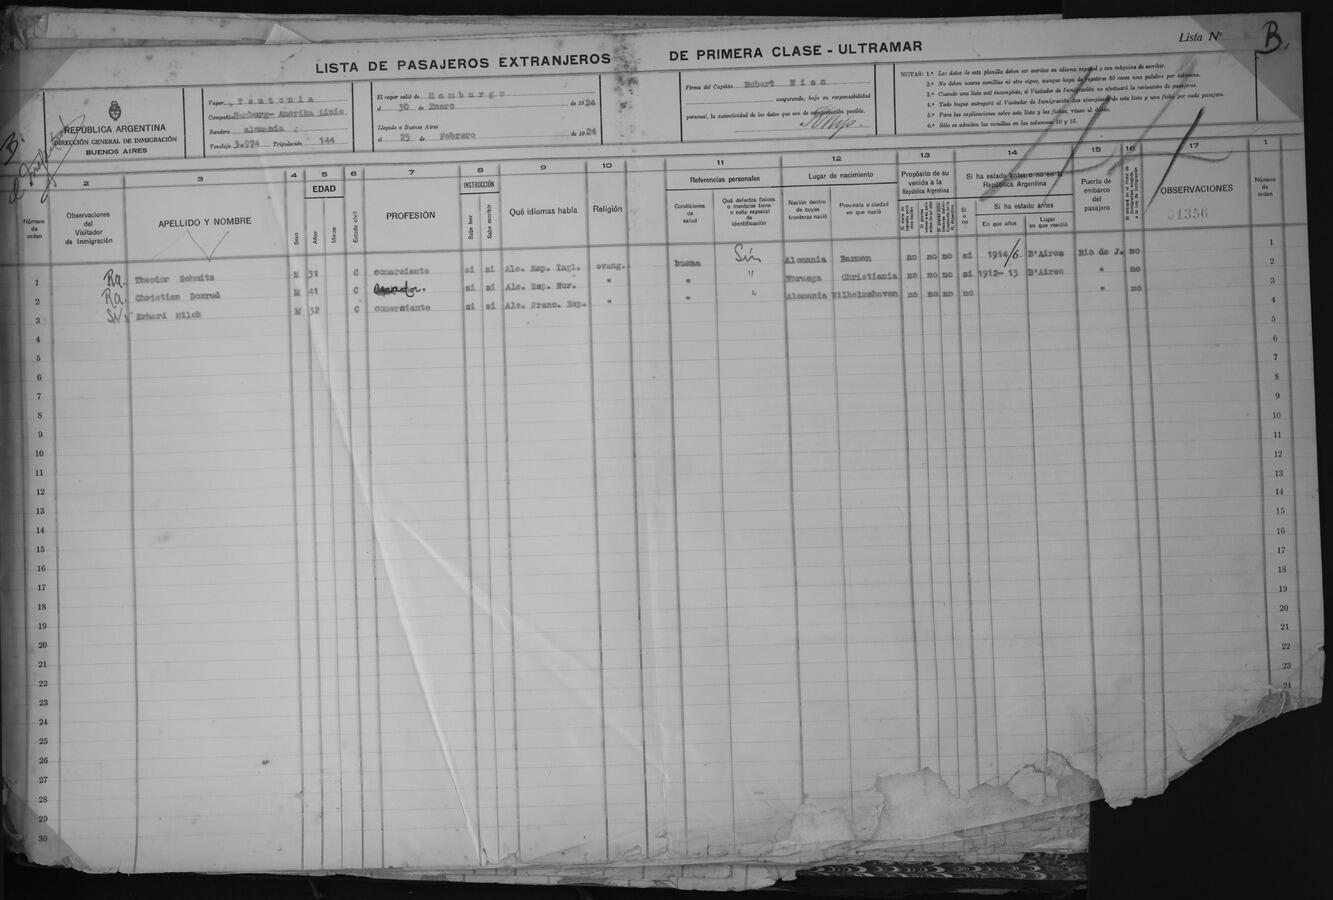 LISTA DE PASAJEROS EXTRANJEROS DE PRIMERA CLASE - ULTRAMAR
Lista Nº B.
REPÚBLICA ARGENTINA
DIRECCIÓN GENERAL DE INMIGRACIÓN
BUENOS AIRES
Vapor Teutonia
Compañía Hamburg- Amerika Linie
Bandera alemania
Tonelaje 3.974 Tripulación 144
El vapor salió de Hamburgo
el 30 de Enero de 1924
Llegado a Buenos Aires
el 25 de Febrero de 1924
Firma del Capitán Robert Nisn
asegurando, bajo su responsabilidad
personal, la autenticidad de los datos que son de comprobación posible.
NOTAS: 1.ª Los datos de esta planilla deben ser escritos en idioma español y con máquina de escribir.
2.ª No deben usarse comillas ni otro signo, aunque haya de repetirse 30 veces una palabra por columna.
3.ª Cuando una lista esté incompleta, el Visitador de Inmigración no efectuará la revisación de pasajeros.
4.ª Todo buque entregará al Visitador de Inmigración dos ejemplares de esta lista y una ficha por cada pasajero.
5.ª Para las explicaciones sobre esta lista y las fichas, véase al dorso.
6.ª Sólo se admiten las comillas en las columnas 10 y 15.
1 2 3 4 5 6 7 8 9 10 11 12 13 14 15 16 17 1
Número de orden
Observaciones del Visitador de Inmigración
APELLIDO Y NOMBRE
Sexo
EDAD
Años
Meses
Estado civil
PROFESIÓN
INSTRUCCIÓN
Sabe leer
Sabe escribir
Qué idiomas habla
Religión
Referencias personales
Condiciones de salud
Qué defectos físicos o mentales tiene o seña especial de identificación
Lugar de nacimiento
Nación dentro de cuyas fronteras nació
Provincia o ciudad en que nació
Propósito de su venida a la República Argentina
Si ha estado antes o no en la República Argentina
Si o no
Si ha estado antes
En que años
Lugar en que residió
Puerto de embarco del pasajero
OBSERVACIONES
Número de orden
01356
1 Ra. Theodor Schmitz M 31 C comerciante si si Ale. Esp. Ingl. evang. buena Sin Alemania Barmen no no no si 1914/6. B'Aires Rio de J. no 1
2 Ra. Christian Doxrud M 41 C si si Ale. Esp. Nor. " " " Noruega Christiania no no no si 1912- 13 B'Aires " no 2
3 Si Erhard Milch M 32 C comerciante si si Ale. Franc. Esp. " " " Alemania Wilhelmshaven no no no no " no 3
4 4
5 5
6 6
7 7
8 8
9 9
10 10
11 11
12 12
13 13
14 14
15 15
16 16
17 17
18 18
19 19
20 20
21 21
22 22
23 23
24 24
25
26
27
28
29
30